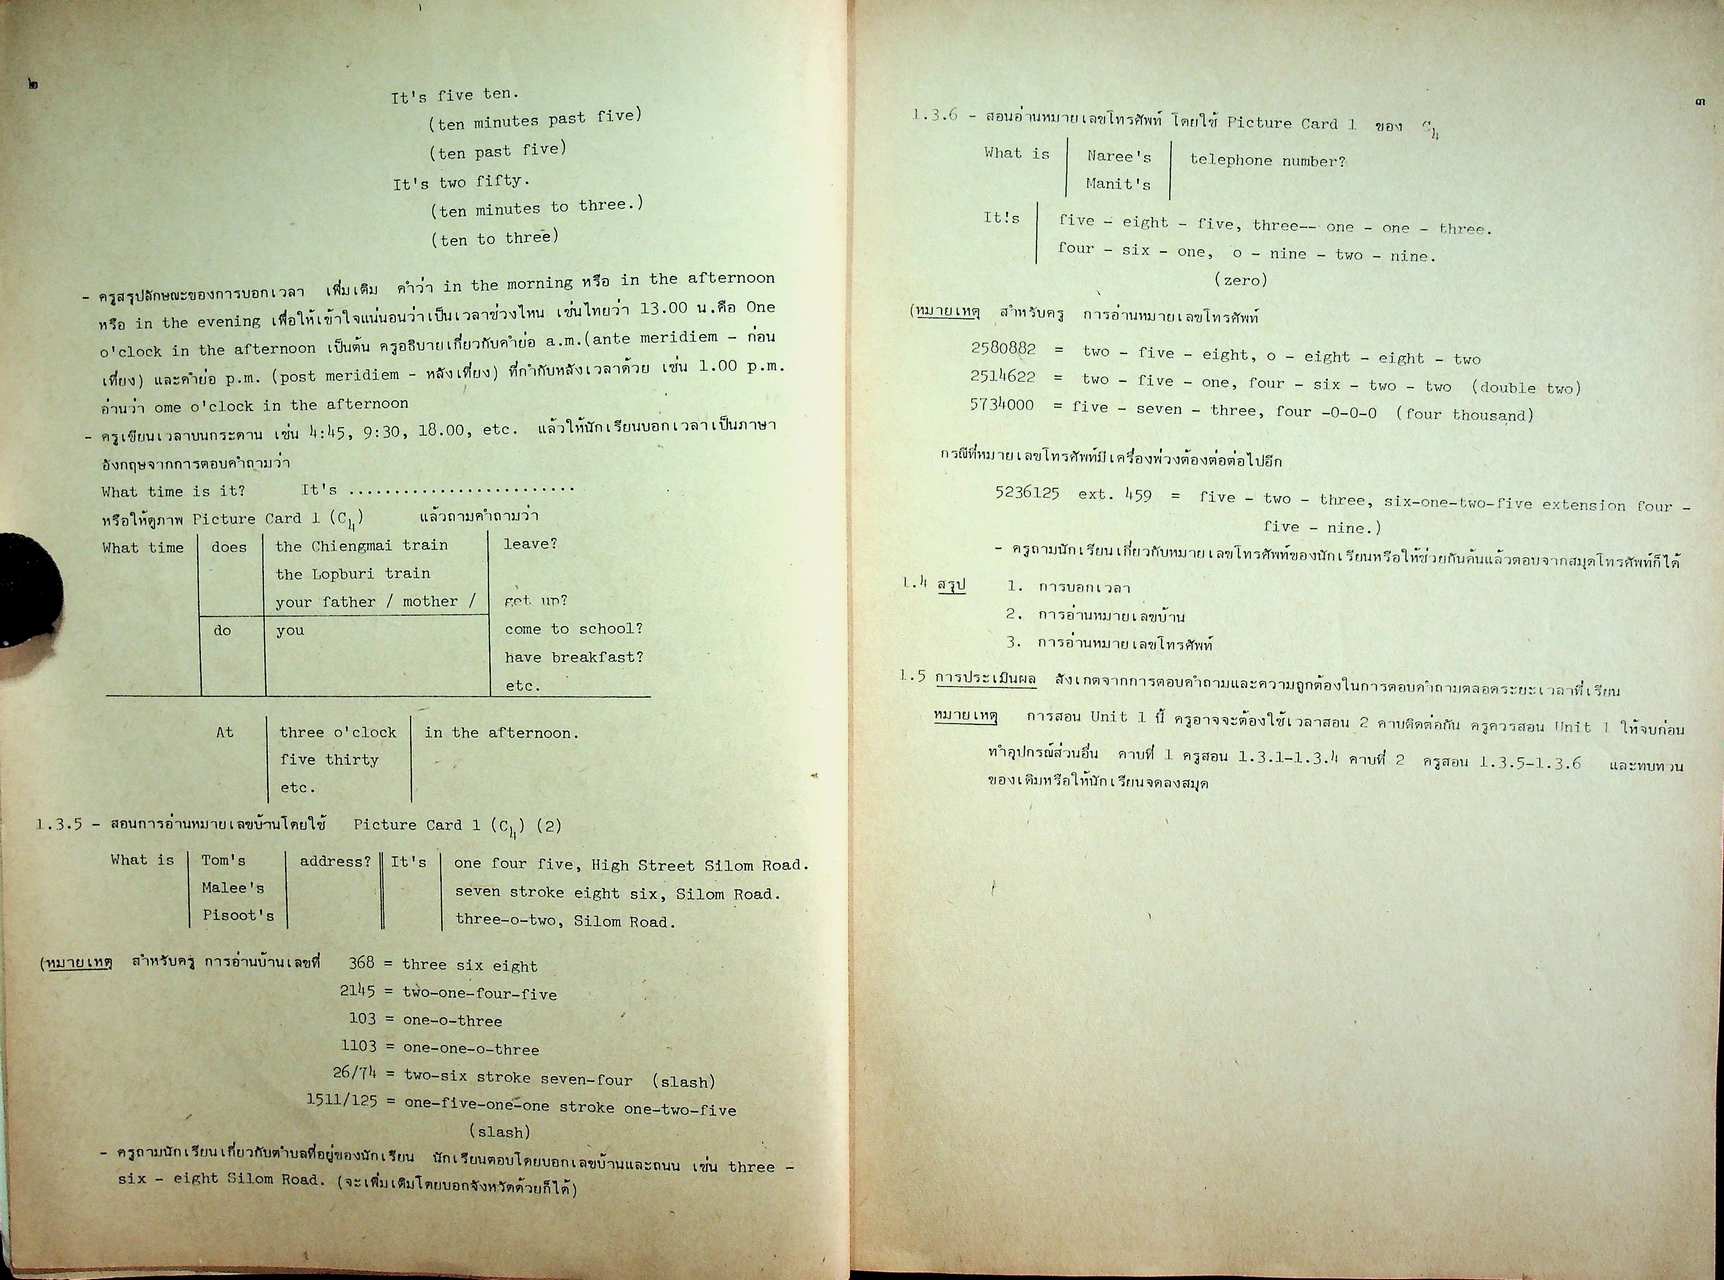 ๒
It's five ten.
(ten minutes past five)
(ten past five)
It's two fifty.
(ten minutes to three.)
(ten to three)
- ครูสรุปลักษณะของการบอกเวลา เพิ่มเติม คำว่า in the morning หรือ in the afternoon
หรือ in the evening เพื่อให้เข้าใจแน่นอนว่าเป็นเวลาช่วงไหน เช่นไทยว่า 13.00 น.คือ One
o'clock in the afternoon เป็นต้น ครูอธิบายเกี่ยวกับคำย่อ a.m.(ante meridiem - ก่อน
เที่ยง) และคำย่อ p.m. (post meridiem - หลังเที่ยง) ที่กำกับหลังเวลาด้วย เช่น 1.00 p.m.
อ่านว่า ome o'clock in the afternoon
- ครูเขียนเวลาบนกระดาน เช่น 4:45, 9:30, 18.00, etc. แล้วให้นักเรียนบอกเวลาเป็นภาษา
อังกฤษจากการตอบคำถามว่า
What time is it? It's .........................
หรือให้ดูภาพ Picture Card 1 (C4) แล้วถามคำถามว่า
What time does the Chiengmai train leave?
the Lopburi train
your father / mother / get up?
do you come to school?
have breakfast?
etc.
At three o'clock in the afternoon.
five thirty
etc.
1.3.5 - สอนการอ่านหมายเลขบ้านโดยใช้ Picture Card 1 (C4) (2)
What is Tom's address? It's one four five, High Street Silom Road.
Malee's seven stroke eight six, Silom Road.
Pisoot's three-o-two, Silom Road.
(หมายเหตุ สำหรับครู การอ่านบ้านเลขที่ 368 = three six eight
2145 = two-one-four-five
103 = one-o-three
1103 = one-one-o-three
26/74 = two-six stroke seven-four (slash)
1511/125 = one-five-one-one stroke one-two-five
(slash)
- ครูถามนักเรียนเกี่ยวกับตำบลที่อยู่ของนักเรียน นักเรียนตอบโดยบอกเลขบ้านและถนน เช่น three -
six - eight Silom Road. (จะเพิ่มเติมโดยบอกจังหวัดด้วยก็ได้)
๓
1.3.6 - สอนอ่านหมายเลขโทรศัพท์ โดยใช้ Picture Card 1 ของ C4
What is Naree's telephone number?
Manit's
It's five - eight - five, three-- one - one - three.
four - six - one, o - nine - two - nine.
(zero)
(หมายเหตุ สำหรับครู การอ่านหมายเลขโทรศัพท์
2580882 = two - five - eight, o - eight - eight - two
2514622 = two - five - one, four - six - two - two (double two)
5734000 = five - seven - three, four -0-0-0 (four thousand)
กรณีที่หมายเลขโทรศัพท์มีเครื่องพ่วงต้องต่อต่อไปอีก
5236125 ext. 459 = five - two - three, six-one-two-five extension four -
five - nine.)
- ครูถามนักเรียนเกี่ยวกับหมายเลขโทรศัพท์ของนักเรียนหรือให้ช่วยกันค้นแล้วตอบจากสมุดโทรศัพท์ก็ได้
1.4 สรุป 1. การบอกเวลา
2. การอ่านหมายเลขบ้าน
3. การอ่านหมายเลขโทรศัพท์
1.5 การประเมินผล สังเกตจากการตอบคำถามและความถูกต้องในการตอบคำถามตลอดระยะเวลาที่เรียน
หมายเหตุ การสอน Unit 1 นี้ ครูอาจจะต้องใช้เวลาสอน 2 คาบติดต่อกัน ครูควรสอน Unit 1 ให้จบก่อน
ทำอุปกรณ์ส่วนอื่น คาบที่ 1 ครูสอน 1.3.1-1.3.4 คาบที่ 2 ครูสอน 1.3.5-1.3.6 และทบทวน
ของเดิมหรือให้นักเรียนจดลงสมุด